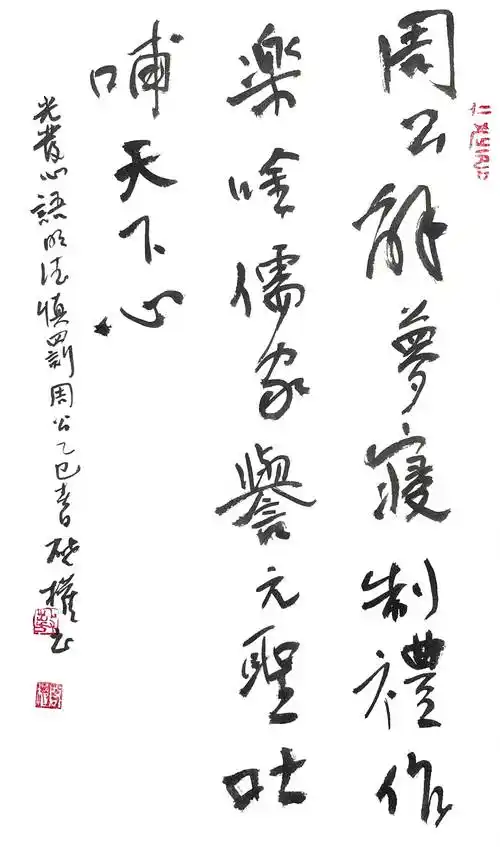 周公解夢寢制禮作
樂唫儒家譽元聖吐
哺天下心
光發心語明德慎罰周公乙巳春權书